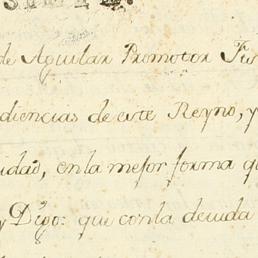 de Aguilar Promotor Fis
diencias de este Reyno, y
uidad, en la mejor forma qu
y Digo: que con la devida